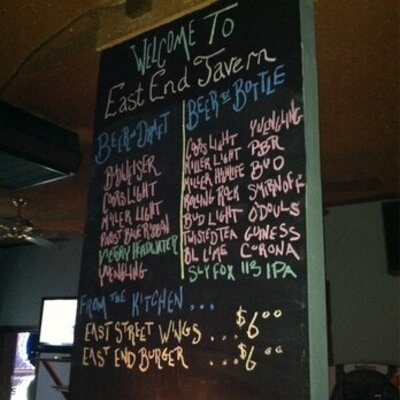 WELCOME TO
East End Tavern
BEER ON DRAFT
BUDWEISER
COORS LIGHT
MILLER LIGHT
PABST BLUE RIBBON
VICTORY HEADWATER
YUENGLING
BEER BY BOTTLE
COORS LIGHT YUENGLING
MILLER LIGHT PBR
MILLER HIGHLIFE BUD
ROLLING ROCK SMIRNOFF
BUD LIGHT O'DOULS
TWISTED TEA GUINESS
BL LIME CORONA
SLY FOX 113 IPA
FROM THE KITCHEN...
EAST STREET WINGS... $6.00
EAST END BURGER ... $6.00